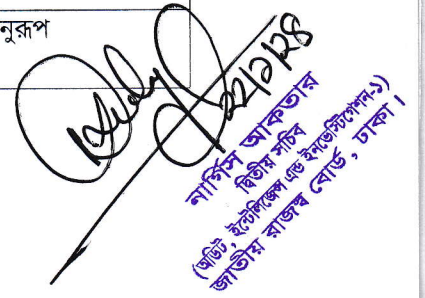 নুরূপ
২২/১/২৪
নার্গিস আকতার
দ্বিতীয় সচিব
(অডিট, ইন্টেলিজেন্স এন্ড ইনভেস্টিগেশন-১)
জাতীয় রাজস্ব বোর্ড, ঢাকা।